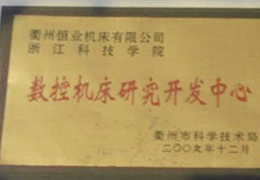 衢州恒业机床有限公司
浙江科技学院
数控机床研究开发中心
衢州市科学技术局
二〇〇九年十二月